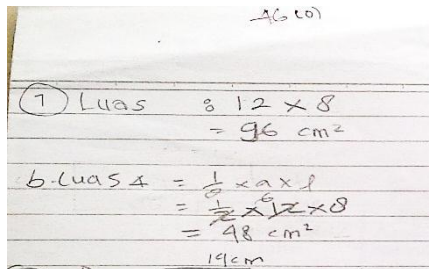 AG (0)
7 Luas : 12 × 8
= 96 cm²
b. Luas Δ = 1/2 × a × t
= 1/2 × 6 12 × 8
= 48 cm²
19cm